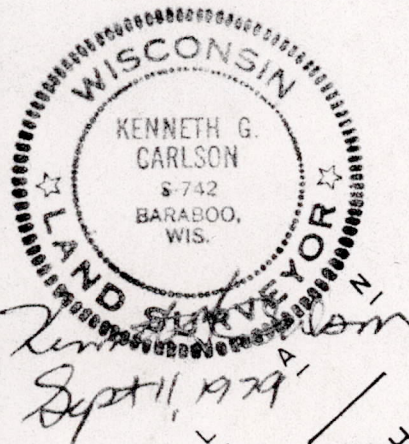 WISCONSIN
KENNETH G.
CARLSON
S-742
BARABOO,
WIS.
LAND SURVEYOR
Sept 11, 1979